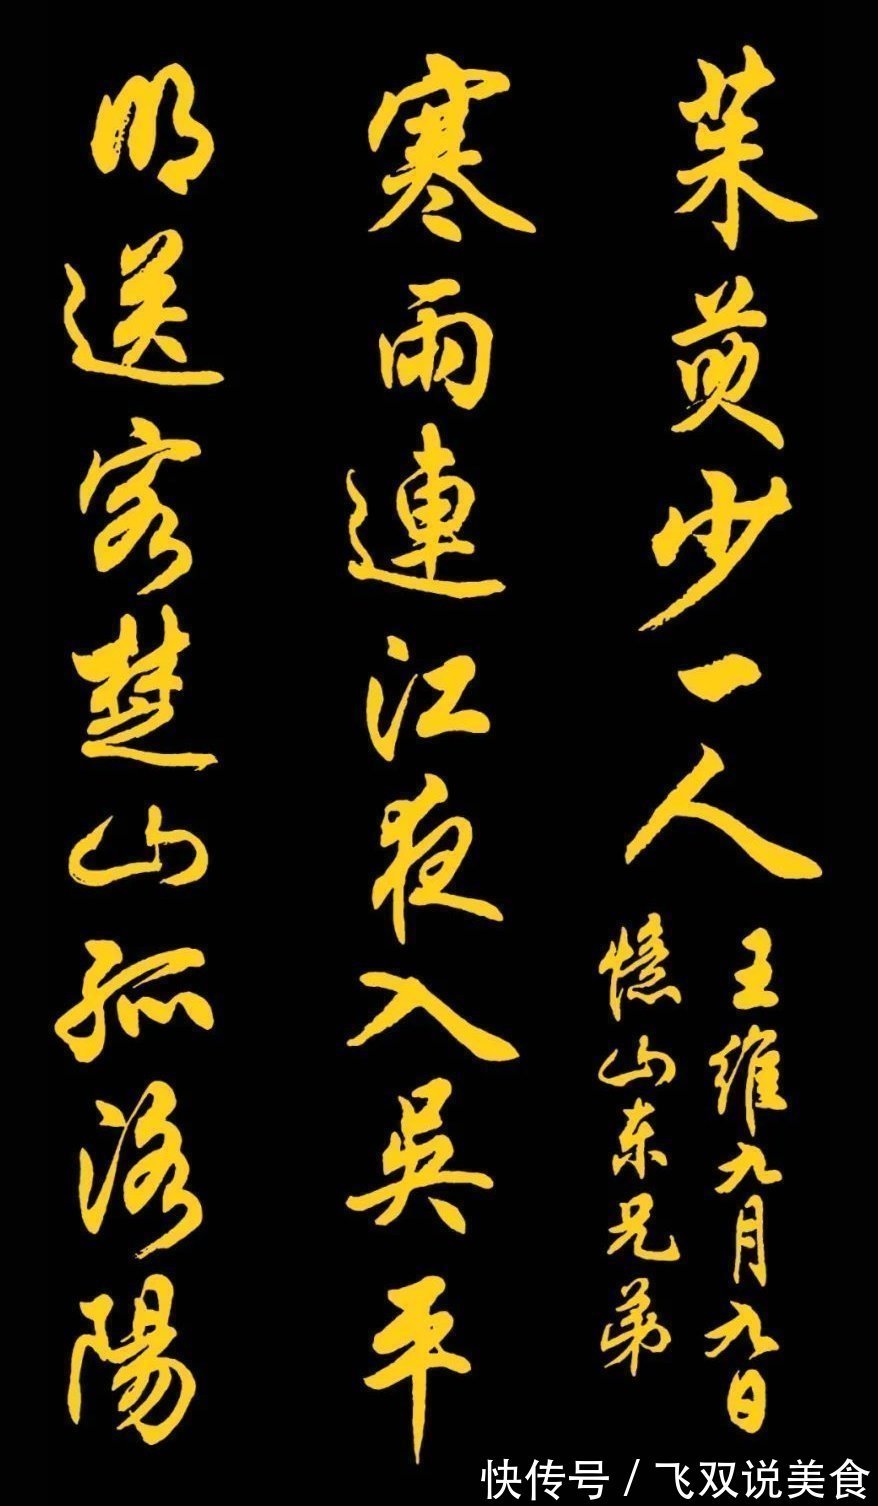 茱萸少一人
王維九月九日
憶山东兄弟
寒雨連江夜入吳平
明送客楚山孤洛陽
快传号/飞双说美食